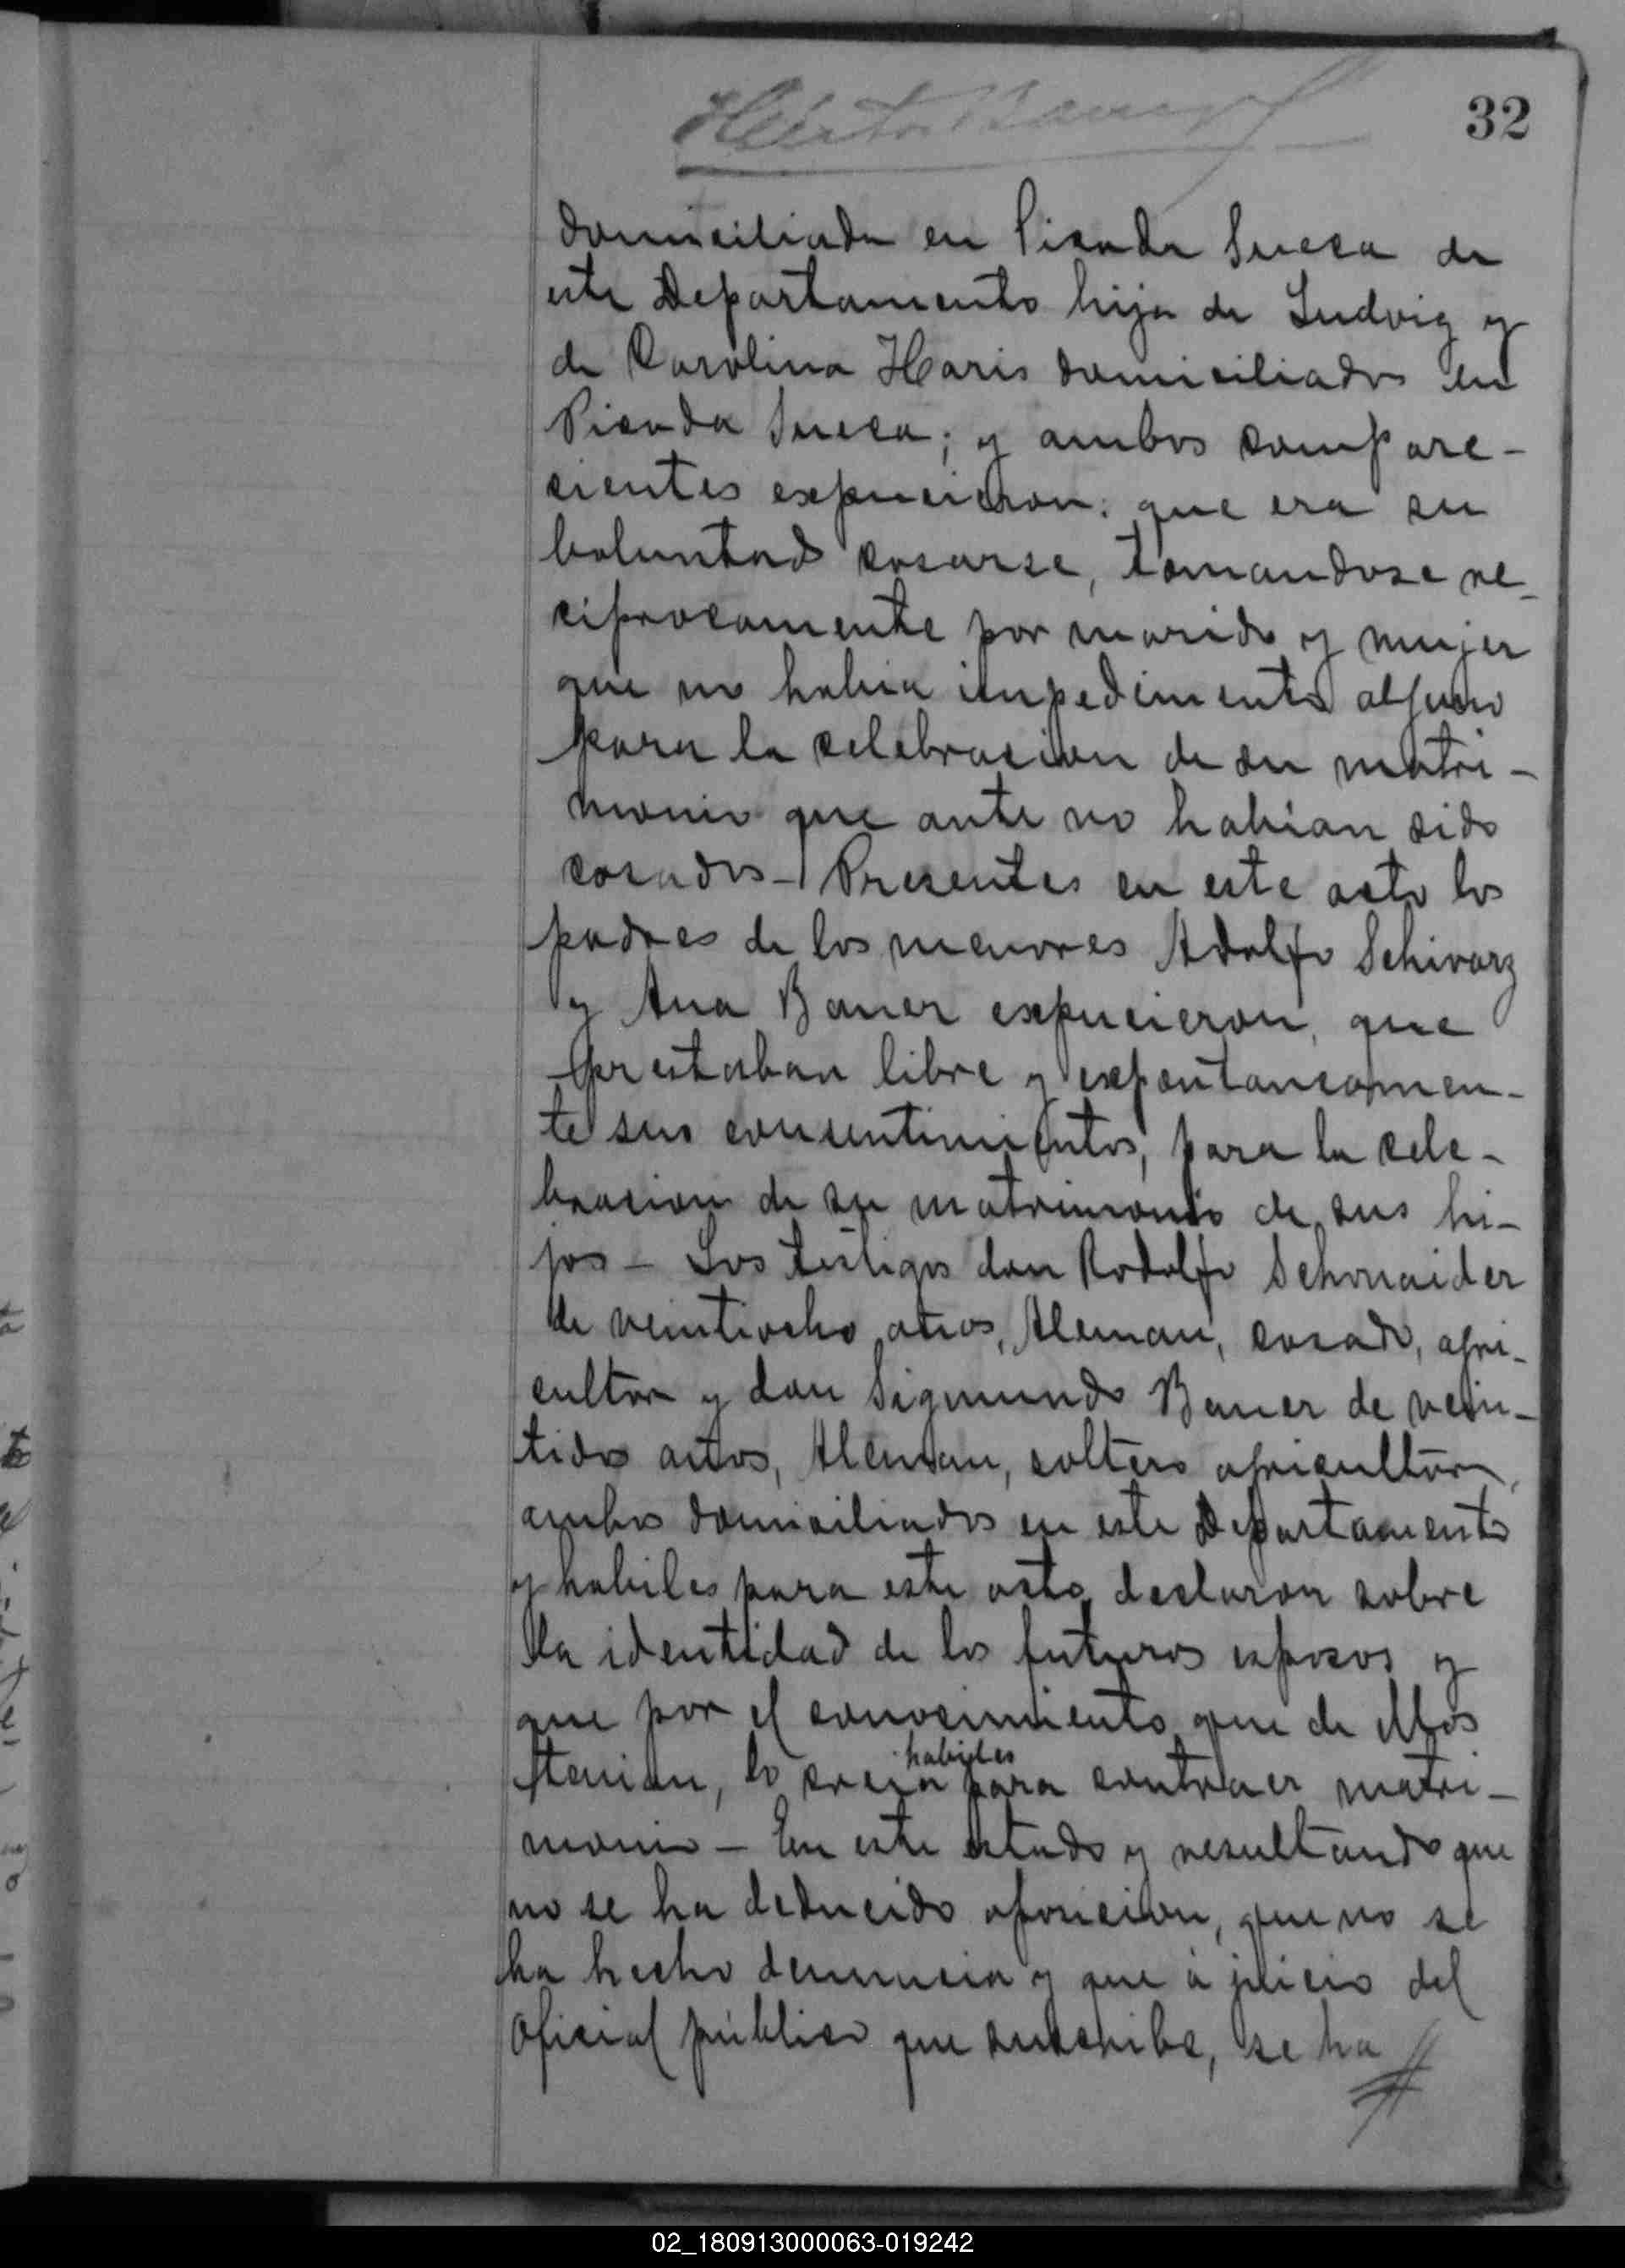 32
domiciliada en Picada Sueca de
este Departamento hija de Ludvig y
de Carolina Haris domiciliados en
Picada Sueca; y ambos compare-
cientes expucieron: que era su
boluntad casarse, tomandose re-
ciprocamente por marido y mujer
que no habia impedimento alguno
para la celebracion de su matri-
monio que ante no habian sido
casados - Presentes en este acto los
padres de los menores Adolfo Schivarz
y Ana Bauer expucieron, que
prestaban libre y expontaneamen-
te sus consentimientos, para la cele-
bracion de su matrimonio de sus hi-
jos - Los testigos don Rodolfo Schnaider
de veintiocho años, Aleman, casado, agri-
cultor y don Sigmundo Bauer de vein-
tidos años, Aleman, soltero agricultor,
ambos domiciliados en este Departamento
y habiles para este acto, declaron sobre
la identidad de los futuros esposos y
que por el conocimiento que de ellos
habiles
tenian, lo creia para contraer matri-
monio - En este estado y resultando que
no se ha deducido oposicion, que no se
ha hecho denuncia y que á juicio del
oficial público que suscribe, se ha
02_180913000063-019242